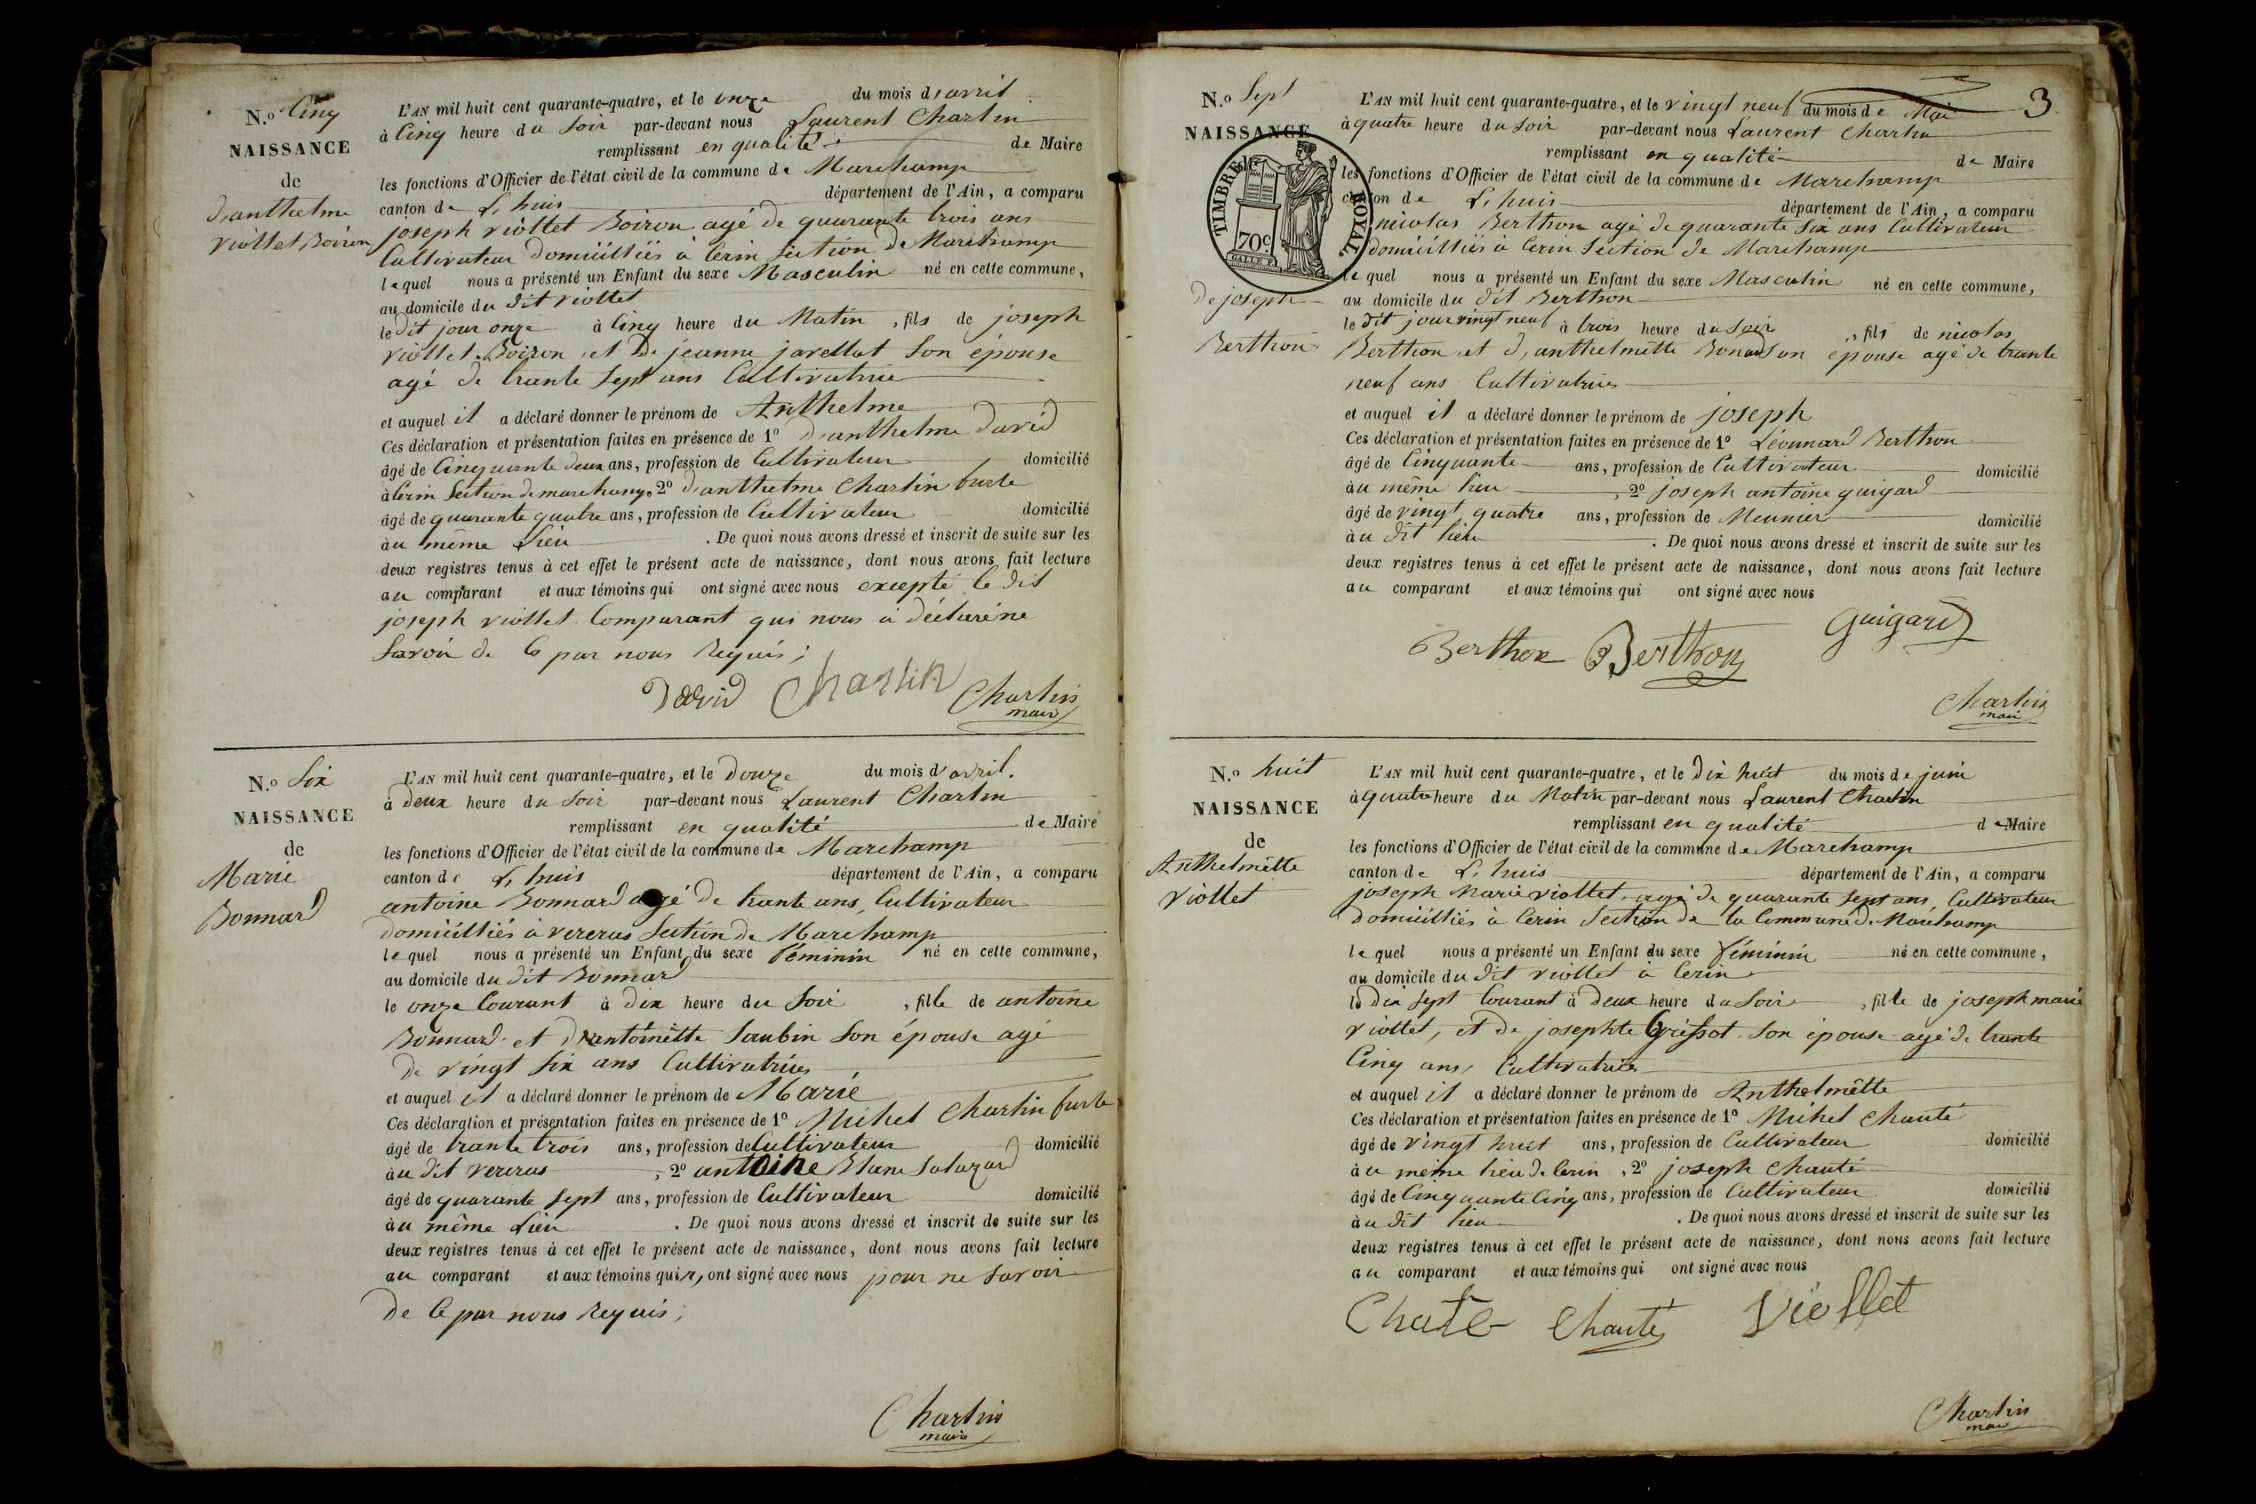 N.º Cinq
NAISSANCE
de
d'anthelme
viollet Boiron
L'AN mil huit cent quarante-quatre, et le onze du mois d'avril
à Cinq heure du Soir par-devant nous Laurent Charlin
remplissant en qualité de Maire
les fonctions d'Officier de l'état civil de la commune de Marchamp
canton de L, huis département de l'Ain, a comparu
joseph viollet Boiron agé de quarante trois ans
Cultivateur domicilliés à Cerin Section de Marchamp
lequel nous a présenté un Enfant du sexe Masculin né en cette commune,
au domicile du dit viollet
le dit jour onze à Cinq heure du Matin, fils de joseph
viollet Boiron et de jeanne javellot Son épouse
agé de trante Sept ans Cultivatrice
et auquel il a déclaré donner le prénom de Anthelme
Ces déclaration et présentation faites en présence de 1º d'anthelme David
âgé de Cinquante deux ans, profession de Cultivateur domicilié
à Cerin Section de marchamp, 2º d'anthelme Charlin furte
âgé de quarante quatre ans, profession de Cultivateur domicilié
àu même Lieu. De quoi nous avons dressé et inscrit de suite sur les
deux registres tenus à cet effet le présent acte de naissance, dont nous avons fait lecture
au comparant et aux témoins qui ont signé avec nous excepté le dit
joseph viollet Comparant qui nous à déclaré ne
Savoir de Ce par nous Requis;
David Charlin Charlin
maire
N.º Six
NAISSANCE
de
Marie
Bonnard
L'AN mil huit cent quarante-quatre, et le Douze du mois d'avril.
à deux heure du Soir par-devant nous Laurent Charlin
remplissant en qualité de Maire
les fonctions d'Officier de l'état civil de la commune de Marchamp
canton de L, huis département de l'Ain, a comparu
antoine Bonnard agé de trante ans, Cultivateur
domicilliés à vereras Section de Marchamp
lequel nous a présenté un Enfant du sexe féminin né en cette commune,
au domicile du dit Bonnard
le onze Courant à dix heure du Soir, fille de antoine
Bonnard et d'antoinètte Soubin Son épouse agé
de vingt Six ans Cultivatrice
et auquel il a déclaré donner le prénom de Marie
Ces déclaration et présentation faites en présence de 1º Michel Charlin furte
âgé de trante trois ans, profession de Cultivateur domicilié
àu dit vereras, 2º antoine Blanc Salazard
âgé de quarante Sept ans, profession de Cultivateur domicilié
àu même Lieu. De quoi nous avons dressé et inscrit de suite sur les
deux registres tenus à cet effet le présent acte de naissance, dont nous avons fait lecture
au comparant et aux témoins qui n, ont signé avec nous pour ne Savoir
de Ce par nous Requis;
Charlin
maire
3
N.º Sept
NAISSANCE
TIMBRE ROYAL.
70c
de joseph
Berthon
L'AN mil huit cent quarante-quatre, et le vingt neuf du mois de Mai
à quatre heure du Soir par-devant nous Laurent Charlin
remplissant en qualité de Maire
les fonctions d'Officier de l'état civil de la commune de Marchamp
canton de L, huis département de l'Ain, a comparu
nicolas Berthon agé de quarante Six ans Cultivateur
domicilliés à Cerin Section de Marchamp
lequel nous a présenté un Enfant du sexe Masculin né en cette commune,
au domicile du dit Berthon
le dit jour vingt neuf à trois heure du Soir, fils de nicolas
Berthon et d, anthelmètte Bonard Son épouse agé de trante
neuf ans Cultivatrice
et auquel il a déclaré donner le prénom de joseph
Ces déclaration et présentation faites en présence de 1º Léonnard Berthon
âgé de Cinquante ans, profession de Cultivateur domicilié
àu même lieu, 2º joseph antoine guigard
âgé de vingt quatre ans, profession de Meunier domicilié
àu dit lieu. De quoi nous avons dressé et inscrit de suite sur les
deux registres tenus à cet effet le présent acte de naissance, dont nous avons fait lecture
au comparant et aux témoins qui ont signé avec nous
Berthon Berthon Guigard
Charlin
maire
N.º huit
NAISSANCE
de
Anthelmètte
Viollet
L'AN mil huit cent quarante-quatre, et le dix huit du mois de juin
à quatre heure du Matin par-devant nous Laurent Charlin
remplissant en qualité de Maire
les fonctions d'Officier de l'état civil de la commune de Marchamp
canton de L, huis département de l'Ain, a comparu
joseph Marie viollet, agé de quarante Sept ans, Cultivateur
domicilliés à Cerin Section de la Commune de Marchamp
lequel nous a présenté un Enfant du sexe féminin né en cette commune,
au domicile du dit viollet à Cerin
le dix Sept Courant à deux heure du Soir, fille de joseph marie
viollet, et de josephte Son épouse agé de trante
Cinq ans, Cultivatrice
et auquel il a déclaré donner le prénom de Anthelmètte
Ces déclaration et présentation faites en présence de 1º Michel Chanté
âgé de vingt huit ans, profession de Cultivateur domicilié
àu même lieu de Cerin, 2º joseph Chanté
âgé de Cinquante Cinq ans, profession de Cultivateur domicilié
àu dit lieu. De quoi nous avons dressé et inscrit de suite sur les
deux registres tenus à cet effet le présent acte de naissance, dont nous avons fait lecture
au comparant et aux témoins qui ont signé avec nous
Chanté Viollet
Charlin
maire